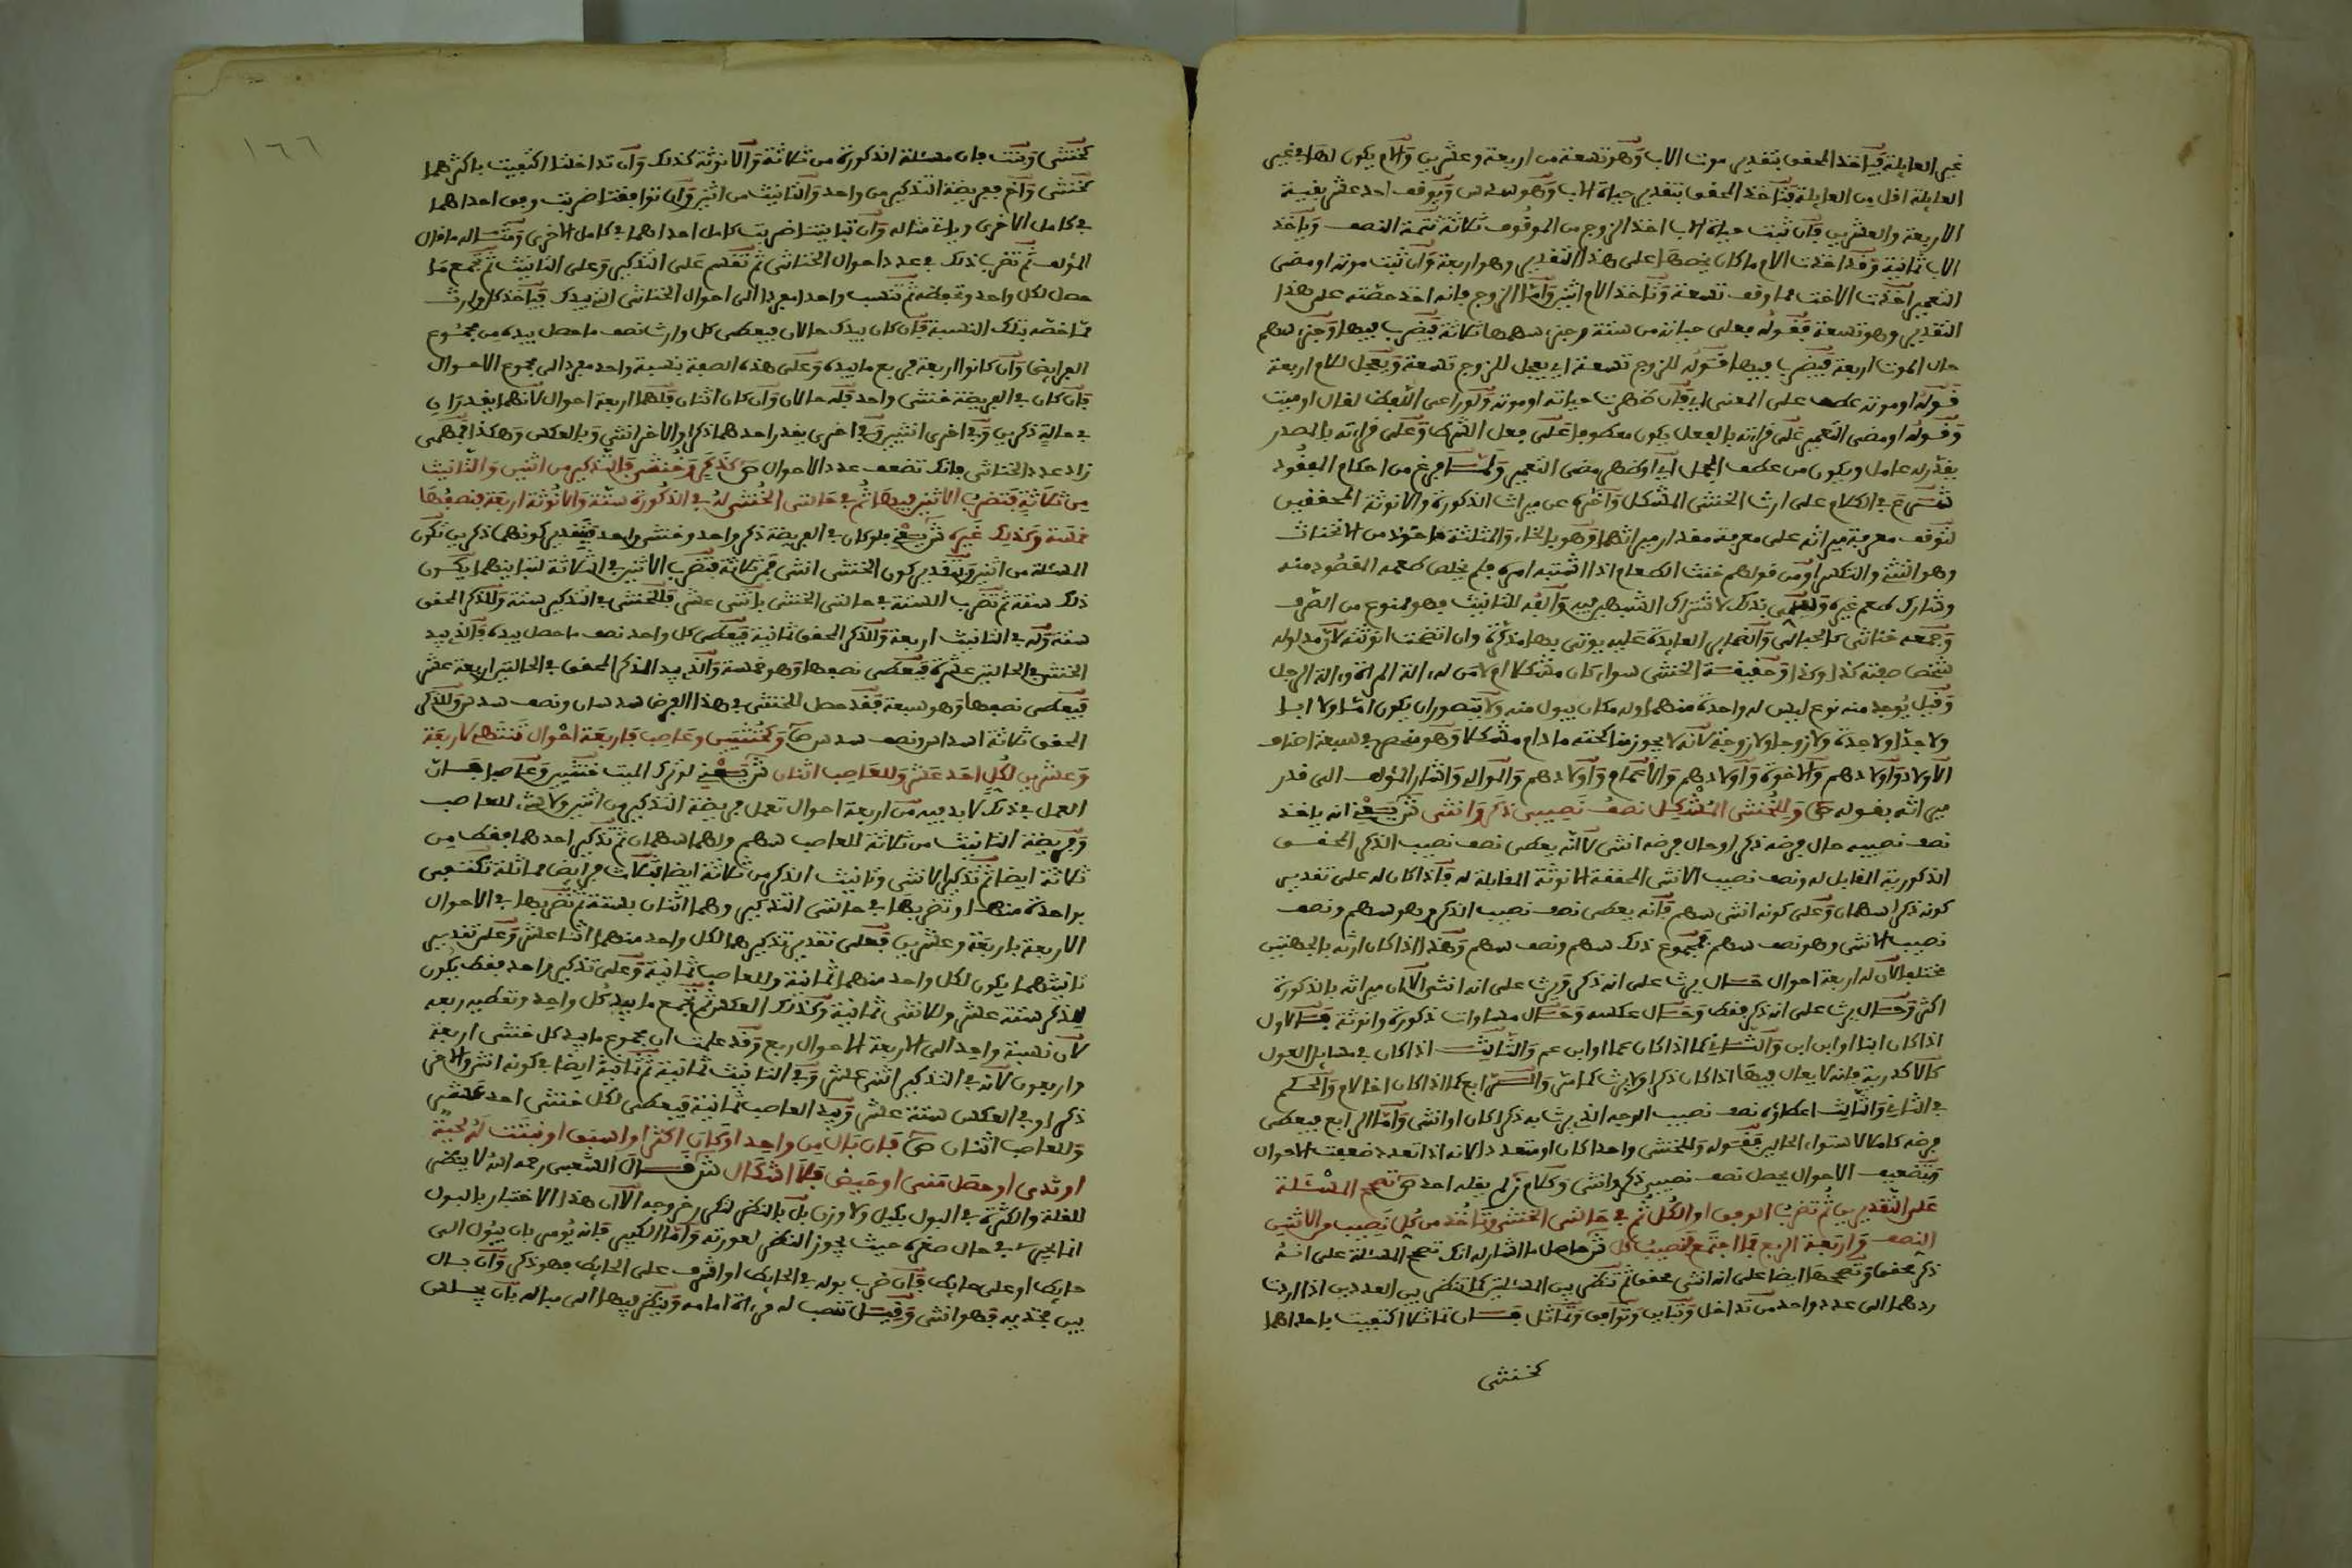 غير العايلة فياخذ المحقق بتقدير موت الاب وهو تسعة من اربعة وعشرين والام يكون لها في غير
العايلة اقل من العايلة فتاخذ المحقق بتقدير حياة الاب وهو سدس ويوقف احد عشر بقية
الاربعة والعشرين فان ثبت حياة الاب اخذ الزوج من الموقوف ثلاثة تتمة النصف وياخذ
الاب ثمانية وقد اخذت الام ما كان يخصها على هذا التقدير وهو اربعة وان ثبت موته او مضى
التعمير اخذت الاخت مما وقف تسعة وتاخذ الام اثنين واما الزوج فانه اخذ حصته على هذا
التقدير وهو تسعة فقوله فعلى حياته من ستة وجزء سهمها ثلاثة يضرب فيها وجزء سهم
حال الموت اربعة يضرب فيها فقوله للزوج تسعة اي يعجل للزوج تسعة ويعجل للام اربعة
قوله او موته عطف على المعنى اي فان ظهرت حياته او موته ولو راعى اللفظ لقال او ميت
وقوله او مضى التعمير على قراءته بالفعل يكون معطوفا على فعل الشرط وعلى قراءته بالمصدر
يقدر له عامل ويكون من عطف الجمل اي او ظهر مضى التعمير ولما فرغ من احكام المفقود
شرع في الكلام على ارث الخنثى المشكل واخره عن ميراث الذكورة والانوثة المحققين
لتوقف معرفة ميراثه على معرفة مقدار ميراثهما وهو بالخاء والمثلثة ماخوذ من الانخناث
وهو التثني والتكسر او من قولهم خنث الطعام اذا اشتبه امره فلم يخلص طعمه المقصود منه
وشارك طعم غيره وسمي بذلك لاشتراك الشبهين فيه والفه للتانيث فهو ممنوع من الصرف
وجمعه خناثى كالحبالى والضماير العايدة عليه يوتى بها مذكرة وان اتضحت انوثته لان مدلوله
شخص صفته كذا وكذا وحقيقة الخنثى سواء كان مشكلا ام لا من له الة المراة والة الرجل
وقيل يوجد منه نوع ليس له واحدة منهما وله مكان يبول منه ولا يتصور ان يكون اما ولا ابا
ولا جدا ولا جدة ولا زوجا ولا زوجة لانه لا يجوز مناكحته ما دام مشكلا وهو منحصر في سبعة اصناف
الاولاد واولادهم والاخوة واولادهم والاعمام واولادهم والموالي واشار المؤلف الى قدر
ميراثه بقوله ص وللخنثى المشكل نصف نصيبي ذكر وانثى ش يعني انه ياخذ
نصف نصيبه حال فرضه ذكرا وحال فرضه انثى لا انه يعطى نصف نصيب الذكر المحقق
الذكورية المقابل له ونصف نصيب الانثى المحققة الانوثة المقابلة له فاذا كان له على تقدير
كونه ذكرا سهمان وعلى كونه انثى سهم فانه يعطى نصف نصيب الذكر وهو سهم ونصف
نصيب الانثى وهو نصف سهم فمجموع ذلك سهم ونصف سهم وهذا اذا كان ارثه بالجهتين
مختلفا لان له اربعة احوال حال يرث على انه ذكر ويرث على انه انثى الا ان ميراثه بالذكورة
اكثر وحال يرث على انه ذكر فقط وحال عكسه وحال مساوات ذكورة وانوثة فالاول
اذا كان ابنا او ابن ابن والثاني كما اذا كان عما او ابن عم والثالث اذا كان في مسايل العول
كالاكدرية فانه لا يعال فيها اذا كان ذكرا ولا يرث كما مر والرابع كما اذا كان اخا لام والحكم
في الثاني والثالث اعطاؤه نصف نصيب الوجه الذي يرث به ذكرا كان او انثى واما الرابع فيعطى
فرضه كاملا لاستواء الحالين فقوله وللخنثى واحدا كان او متعددا لانه اذا تعدد ضعفت الاحوال
وتضعيف الاحوال يحصل نصف نصيبي ذكر وانثى وكلام ز لم يقله احد ص تصحح المسئلة
على التقديرين ثم تضرب الوفق او الكل ثم في حالتي الخنثى وتاخذ من كل نصيب من الاثنين
النصف واربعة الربع فما اجتمع فنصيب كل ش حاصل ما اشار له انك تصحح المسئلة على انه
ذكر محقق وتصححها ايضا على انه انثى محقق ثم تنظر بين المسئلتين كما تنظر بين العددين اذا اردت
ردهما الى عدد واحد من تداخل وتباين وتوافق وتماثل فان تماثلا اكتفيت باحداهما
كخنثى
١٦٦
كخنثى وبنت فان مسئلة الذكورة من ثلاثة والانوثة كذلك وان تداخلتا اكتفيت باكثرهما
كخنثى واخ ففريضة التذكير من واحد والتانيث من اثنين وان توافقتا ضربت وفق احداهما
في كامل الاخرى وياتي مثاله وان تباينتا ضربت كامل احداهما في كامل الاخرى ومثاله ما قال
المؤلف ثم تضرب ذلك في عدد احوال الخناثى ثم تقسم على التذكير وعلى التانيث ثم تجمع ما
حصل لكل واحد وتحفظه ثم تنسب واحدا مفردا الى احوال الخناثى التي بيدك فياخذ كل وارث
مما خصه بتلك النسبة فان كان بيدك حالان فيعطى كل وارث نصف ما حصل بيده من مجموع
الفرايض وان كانوا اربعة فربع ما بيده وعلى هذه الصفة بنسبة واحد مفرد الى مجموع الاحوال
فان كان في الفريضة خنثى واحد فله حالان وان كان اثنان فلهما اربعة احوال لانهما يقدران
في حالة ذكرين وفي اخرى انثيين وفي اخرى يقدر احدهما ذكرا والاخر انثى وبالعكس وهكذا فمهما
زاد عدد الخناثى فانك تضعف عدد الاحوال ص كذكر وخنثى فالتذكير من اثنين والتانيث
من ثلاثة فتضرب الاثنين فيها ثم في حالتي الخنثى له في الذكورة ستة والانوثة اربعة فنصفها
خمسة وكذلك غيره ش يعني فلو كان في الفريضة ذكر واحد وخنثى واحد فبتقدير كونهما ذكرين تكون
المسئلة من اثنين وبتقدير كون الخنثى انثى فمن ثلاثة فتضرب الاثنين في الثلاثة لتباينهما يكون
ذلك ستة ثم تضرب الستة في حالتي الخنثى باثني عشر فللخنثى في التذكير ستة وللذكر المحقق
ستة وله في التانيث اربعة وللذكر المحقق ثمانية فيعطى كل واحد نصف ما حصل بيده فالذي بيد
الخنثى في الحالتين عشرة فيعطى نصفها وهو خمسة والذي بيد الذكر المحقق في الحالتين اربعة عشر
فيعطى نصفها وهو سبعة فقد حصل للخنثى في هذا الفرض سدسان ونصف سدس وللذكر
المحقق ثلاثة اسداس ونصف سدس ص وكخنثيين وعاصب فاربعة احوال تنتهي لاربعة
وعشرين لكل احد عشر وللعاصب اثنان ش يعني لو ترك الميت خنثيين وعاصبا فان
العمل في ذلك لا بد فيه من اربعة احوال تعمل فريضة التذكير من اثنين ولا شيء للعاصب
وفريضة التانيث من ثلاثة للعاصب سهم ولهما سهمان ثم تذكير احدهما فقط من
ثلاثة ايضا ثم تذكير الانثى وتانيث الذكر من ثلاثة ايضا فثلاث فرايض مماثلة تكتفي
بواحدة منها وتضربها في حالتي التذكير وهما اثنان بستة ثم تضربها في الاحوال
الاربعة باربعة وعشرين فعلى تقدير تذكيرهما لكل واحد منهما اثنا عشر وعلى تقدير
تانيثهما يكون لكل واحد منهما ثمانية وللعاصب ثمانية وعلى تذكير واحد فقط يكون
للذكر ستة عشر وللانثى ثمانية وكذلك العكس ثم تجمع ما بيد كل واحد وتعطيه ربعه
لان نسبة واحد الى الاربعة الاحوال ربع وقد علمت ان مجموع ما بيد كل خنثى اربعة
واربعون لانه في التذكير اثنى عشر وفي التانيث ثمانية ثم ثمانية ايضا في كونه انثى والاخر
ذكر او في العكس ستة عشر وبيد العاصب ثمانية فيعطى لكل خنثى احد عشر
وللعاصب اثنان ص فان بال من واحد او كان اكثر او اسبق او نبتت له لحية
او ثدي او حصل مني او حيض فلا اشكال ش قال الشعبي رحمه الله لا ينظر
للقلة والكثرة في البول بكيل ولا وزن بل بالنظر لتكرر خروجه الا ان هذا الاختبار بالبول
انما يجري في حال صغره حيث يجوز النظر لعورته واما الكبير فانه يومر بان يبول الى
حايط او على حايط فان ضرب بوله في الحايط او اشرف على الحايط فهو ذكر وان سال
بين فخذيه فهو انثى وقيل تنصب له مراة امامه وينظر فيها الى مباله بان يجلس